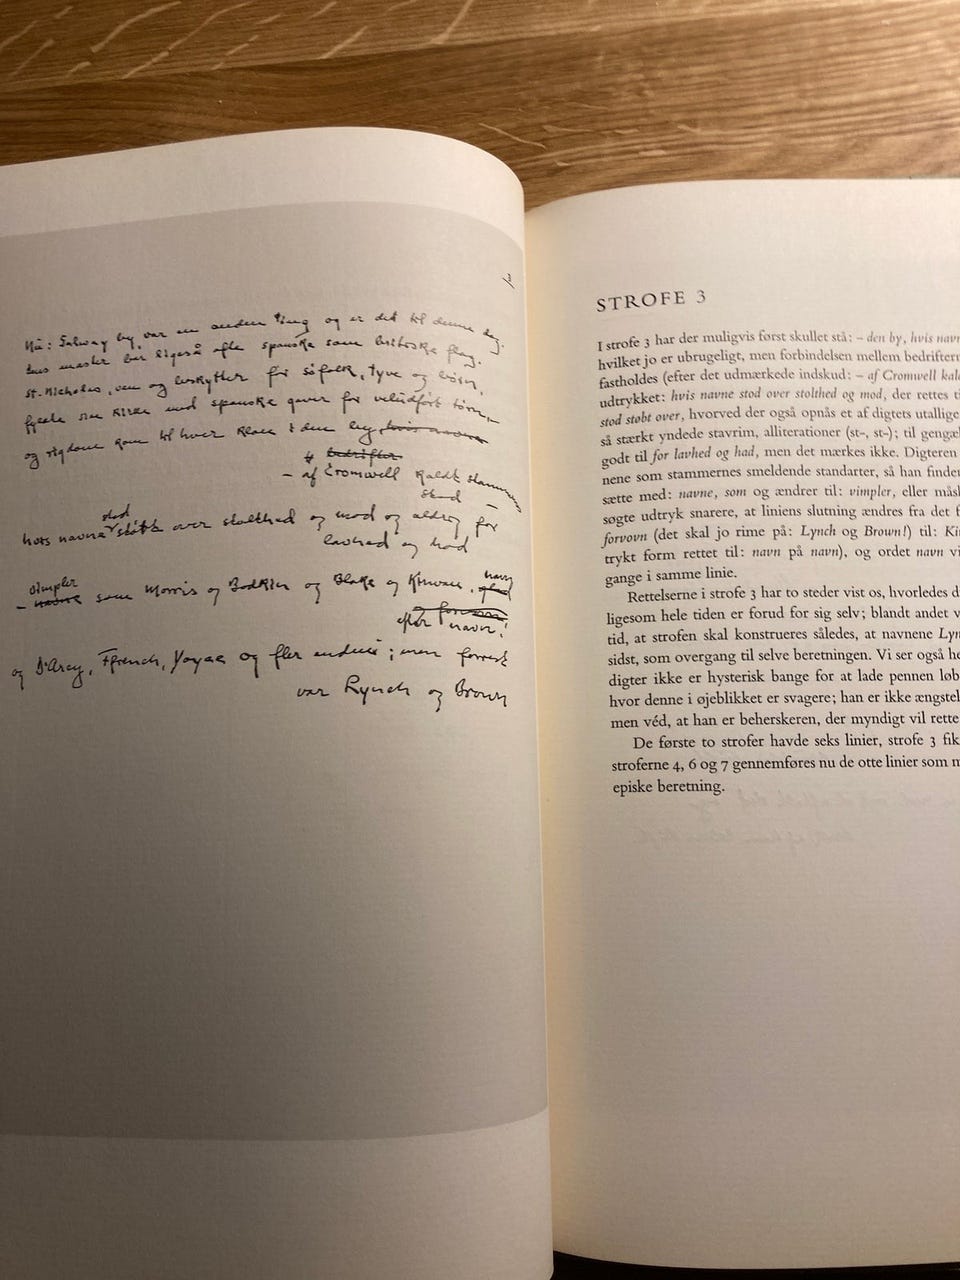 3
Nå: Galway by, var en anden ting og er det til denne dag.
dens master bar ligeså ofte spanske som britiske flag.
St. Nicholas, ven og beskytter for søfolk, tyve og børn,
fyldte sin kirke med spanske gaver for veludført tørn,
og rigdom kom til hver klan i den by, hvis navne
bedrifter
– af Cromwell kaldt stammer
stod
stod
hvis navne støbt over stolthed og mod og aldrig for
lavhed og had
vimpler
navn
– navne som Morris og Bodkin og Blake og Kirwan,
forvovn
efter navn!
og D'Arcy, Ffrench, Joyce og fler endnu; men forrest
var Lynch og Brown
STROFE 3
I strofe 3 har der muligvis først skullet stå: – den by, hvis navn
hvilket jo er ubrugeligt, men forbindelsen mellem bedrifter
fastholdes (efter det udmærkede indskud: – af Cromwell kal
udtrykket: hvis navne stod over stolthed og mod, der rettes ti
stod støbt over, hvorved der også opnås et af digtets utallige
så stærkt yndede stavrim, alliterationer (st-, st-); til gengæl
godt til for lavhed og had, men det mærkes ikke. Digteren
nene som stammernes smeldende standarter, så han finder
sætte med: navne, som og ændrer til: vimpler, eller mås
søgte udtryk snarere, at liniens slutning ændres fra det f
forvovn (det skal jo rime på: Lynch og Brown!) til: Ki
trykt form rettet til: navn på navn), og ordet navn vi
gange i samme linie.
Rettelserne i strofe 3 har to steder vist os, hvorledes d
ligesom hele tiden er forud for sig selv; blandt andet v
tid, at strofen skal konstrueres således, at navnene Lyn
sidst, som overgang til selve beretningen. Vi ser også he
digter ikke er hysterisk bange for at lade pennen løb
hvor denne i øjeblikket er svagere; han er ikke ængstel
men véd, at han er beherskeren, der myndigt vil rette
De første to strofer havde seks linier, strofe 3 fik
stroferne 4, 6 og 7 gennemføres nu de otte linier som m
episke beretning.